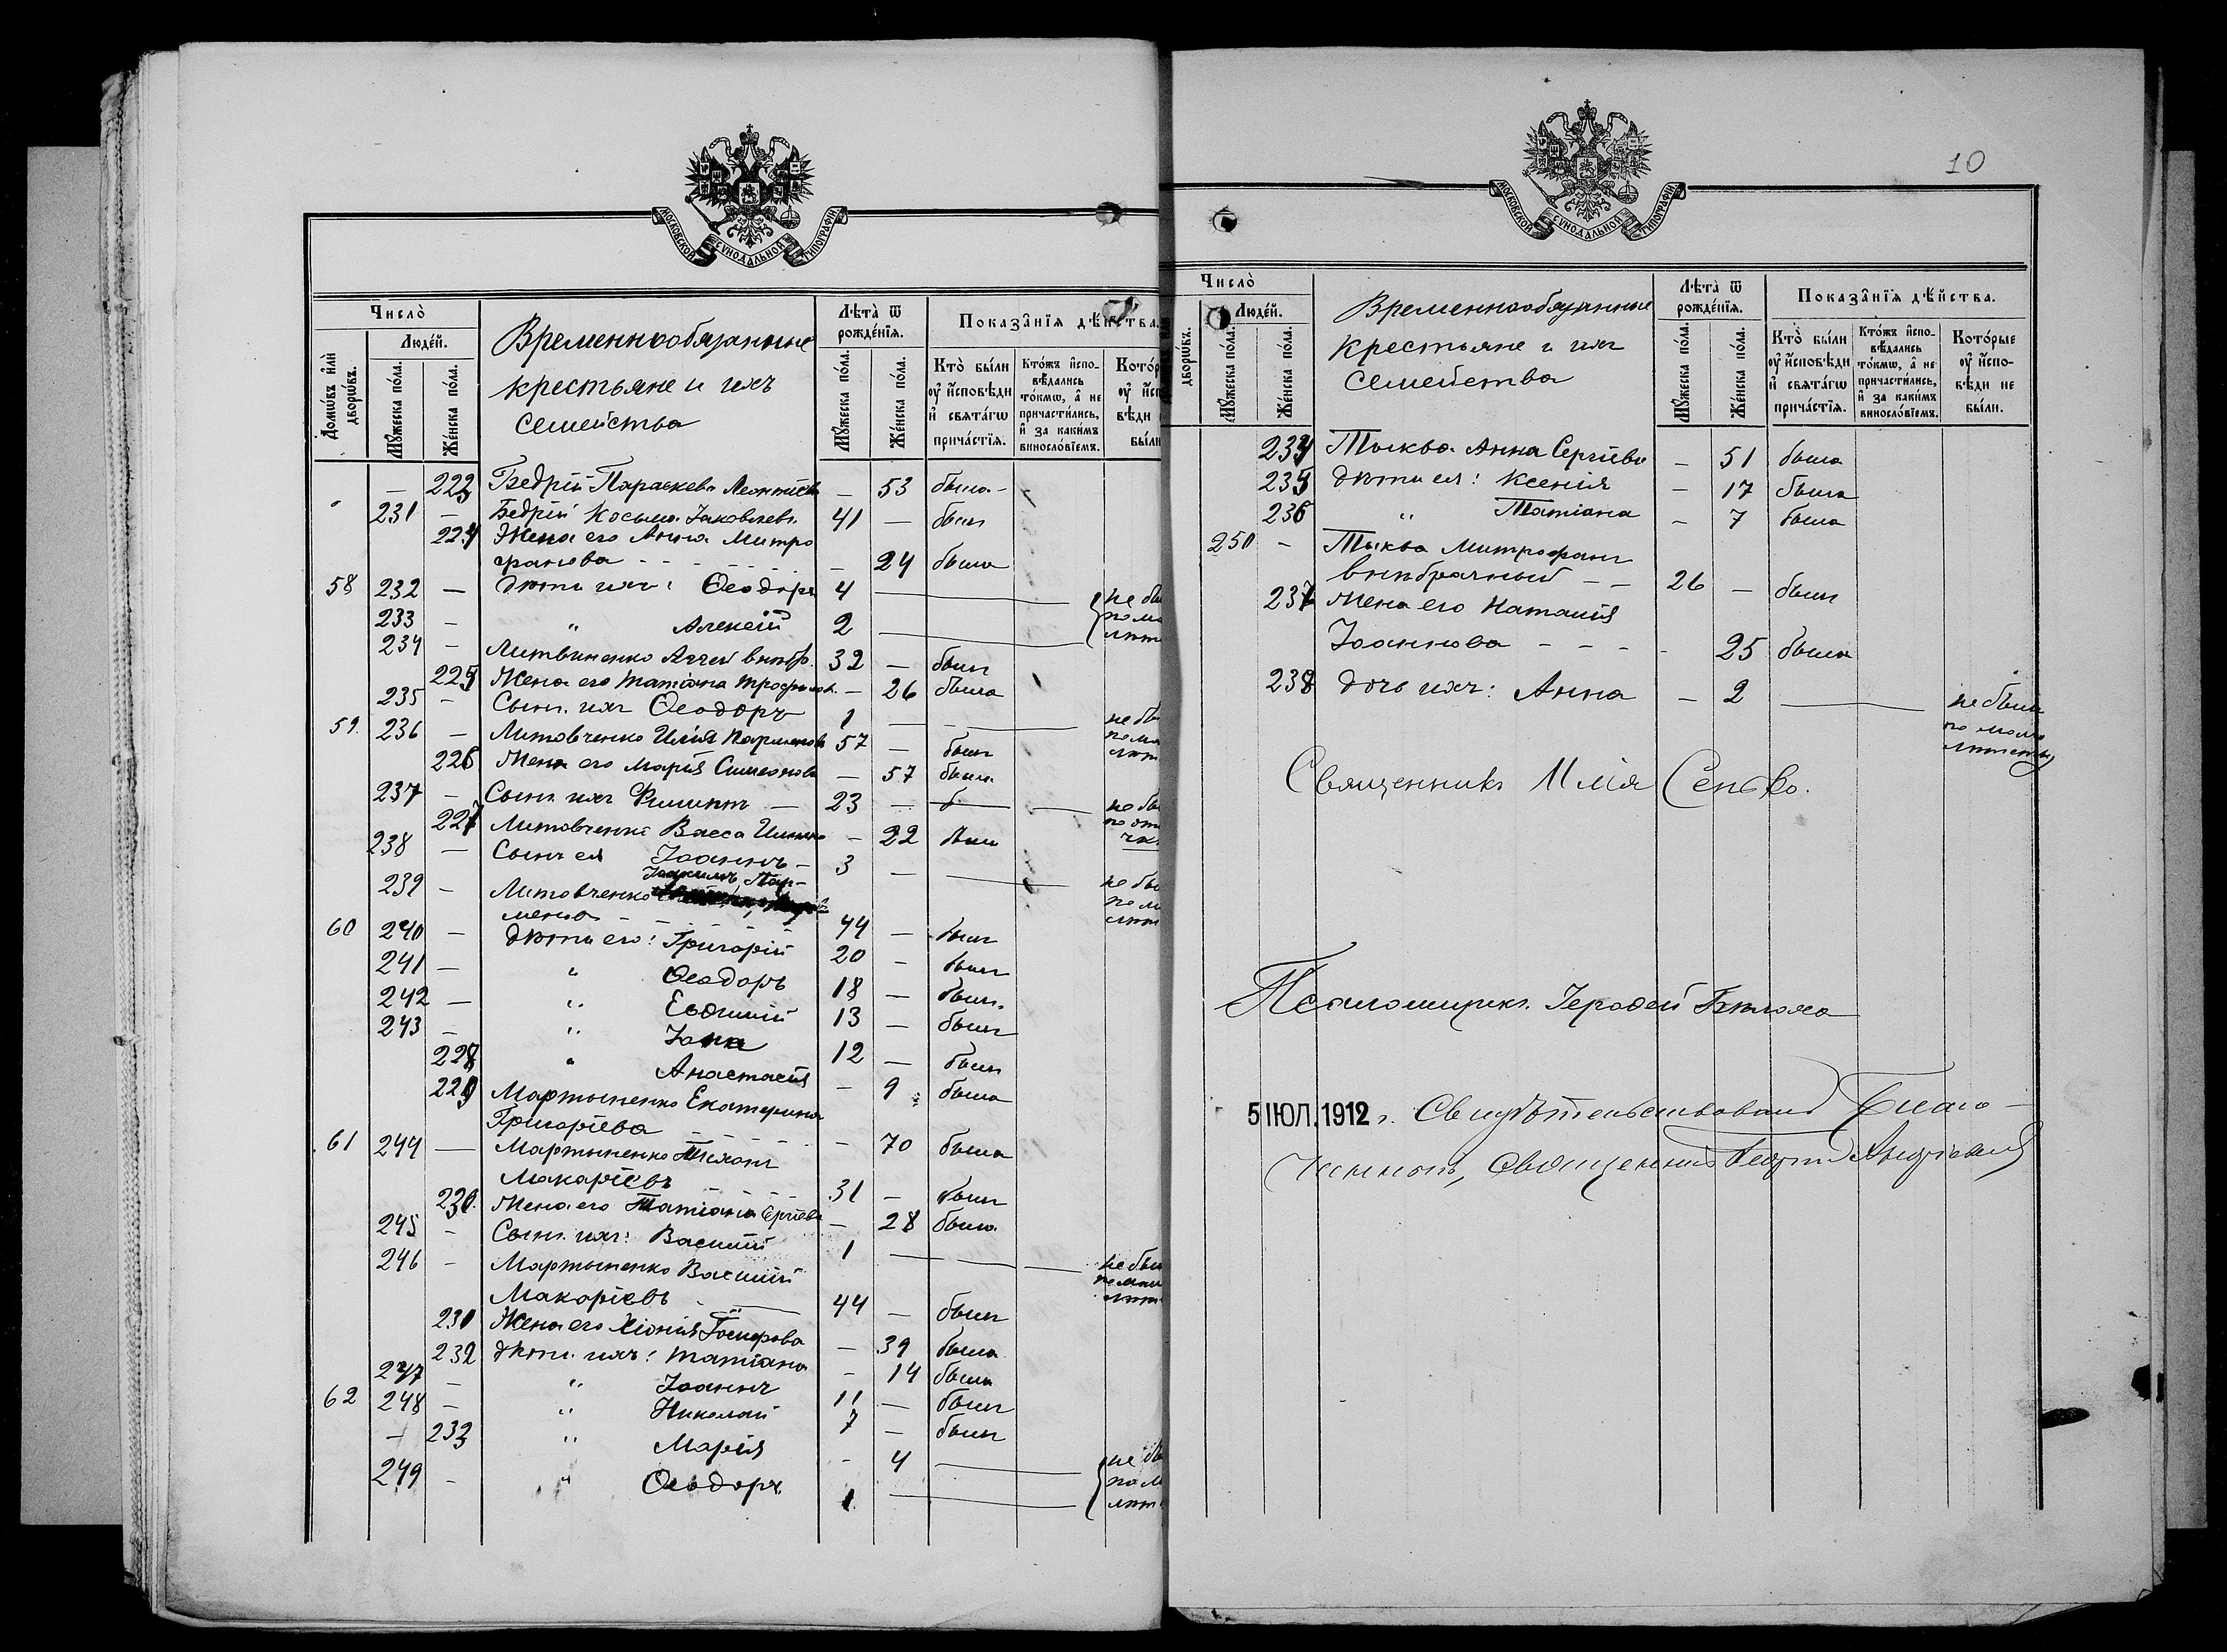 МОСКОВСКОЙ СѴНОДАЛЬНОЙ ТИПОГРАФІИ
Число̀
Домѡ́въ и҆лѝ дворѡ́въ.
Люде́й.
Мꙋ́жеска по́ла.
Же́нска по́ла.
Временнообязанные
крестьяне и ихъ
семейства
Лѣ́та ѿ рожде́нїѧ.
Мꙋ́жеска по́ла.
Же́нска по́ла.
Показа̑нїѧ дѣ́йства.
Кто̀ бы́ли ᲂу҆ и҆́сповѣди и҆ свѧта́гѡ прича́стїѧ.
Кто́жъ и҆спо- вѣ́дались то́кмѡ, а҆ не причасти́лись, и҆ за каки́мъ виносло́вїемъ.
— 223 Бедрій Параскева Леонтіева — 53 была —
231 — Бедрій Косьма Іаковлевъ 41 — былъ
224 Жена его Анна Митро
фанова — 24 была
58 232 — дѣти ихъ: Ѳеодоръ 4
233 — " Алексій 2
234 — Литвиненко Аггей внѣбр. 32 — былъ
225 Жена его Татіана Трофимов. — 26 была
235 — Сынъ ихъ Ѳеодоръ 1
59 236 — Литовченко Илія Парменовъ 57 — былъ
226 Жена его Марія Симеонова — 57 была
237 — Сынъ ихъ Филиппъ — 23
227 Литовченко Васса Ильина — 22 была
238 — Сынъ ея Іоаннъ — 3 —
239 — Литовченко Іоакимъ Пар-
меновъ 44 — былъ
60 240 — дѣти его: Григорій 20 — былъ
241 — " Ѳеодоръ 18 — былъ
242 — " Евѳимій 13 — былъ
243 — " 12 — былъ
228 " Анастасія — 9 была
229 Мартыненко Екатерина
Григоріева — 70 была
61 244 — Мартыненко Тихонъ
Макаріевъ 31 — былъ
230 Жена его Татіана Сергіева — 28 была
245 — Сынъ ихъ: Василій 1
246 — Мартыненко Василій
Макаріевъ 44 — былъ
231 Жена его Хіонія — 39 была
232 дѣти ихъ: Татіана — 14 была
247 — " Іоаннъ 11 — былъ
62 248 — " Николай 7 — былъ
— 233 " Марія — 4
249 — " Ѳеодоръ 1
10
МОСКОВСКОЙ СѴНОДАЛЬНОЙ ТИПОГРАФІИ
Число̀
дворѡ́въ.
Люде́й.
Мꙋ́жеска по́ла.
Же́нска по́ла.
Временнообязанные
крестьяне и ихъ
семейства
Лѣ́та ѿ рожде́нїѧ.
Мꙋ́жеска по́ла.
Же́нска по́ла.
Показа̑нїѧ дѣ́йства.
Кто̀ бы́ли ᲂу҆ и҆́сповѣди и҆ свѧта́гѡ прича́стїѧ.
Кто́жъ и҆спо- вѣ́дались то́кмѡ, а҆ не причасти́лись, и҆ за каки́мъ виносло́вїемъ.
Кото́рые ᲂу҆ и҆́спо- вѣди не бы́ли.
234 Тыква Анна Сергіева — 51 была
235 дѣти ея: Ксенія — 17 была
236 " Татіана — 7 была
250 — Тыква Митрофанъ
внѣбрачный — — 26 — былъ
237 Жена его Наталія
Іоаннова — — — — 25 была
238 дочь ихъ: Анна — 2 не была
по мало
лѣтству
Священникъ Илія Сенько.
Псаломщикъ Іеровей Бѣлоха
5 ІЮЛ. 1912 г. Свидѣтельствовалъ Благо-
чинный, Священникъ